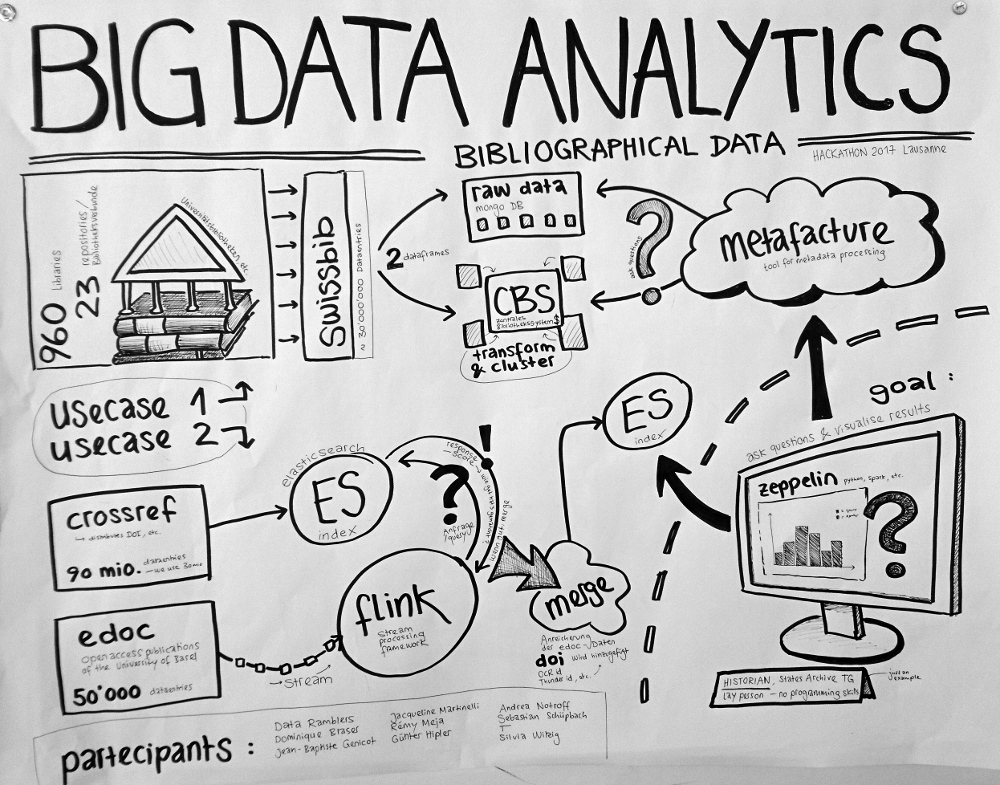 BIG DATA ANALYTICS
BIBLIOGRAPHICAL DATA
HACKATHON 2017 Lausanne
960 Libraries
23 repositories/
Bibliotheksverbünde
Universitätsbibliotheken etc.
Swissbib
~ 30'000'000 Dataentries
2 dataframes
raw data
mongo DB
CBS
zentrales
Bibliothekssystem
transform
& cluster
ask questions
?
metafacture
tool for metadata processing
usecase 1
usecase 2
goal :
ask questions & visualise results
zeppelin python, spark, etc.
?
HISTORIAN, States Archive TG
Lay person - no programming skills
just an
example
crossref
distributes DOI, etc.
90 mio. dataentries
- we use 30 mio
elasticsearch
ES
index
?
Anfrage
/query
!
response
score
wenn gut: merge
flink
stream
processing
framework
edoc
open access publications
of the University of Basel
50'000 dataentries
→ Stream
merge
Anreicherung
der edoc-Daten
doi wird hinzugefügt
OCR id
Thunder id, etc.
ES
index
partecipants :
Data Ramblers
Dominique Blaser
Jean-Baptiste Genicot
Jacqueline Martinelli
Rémy Meja
Günter Hipler
Andrea Notroff
Sebastian Schüpbach
T
Silvia Witzig